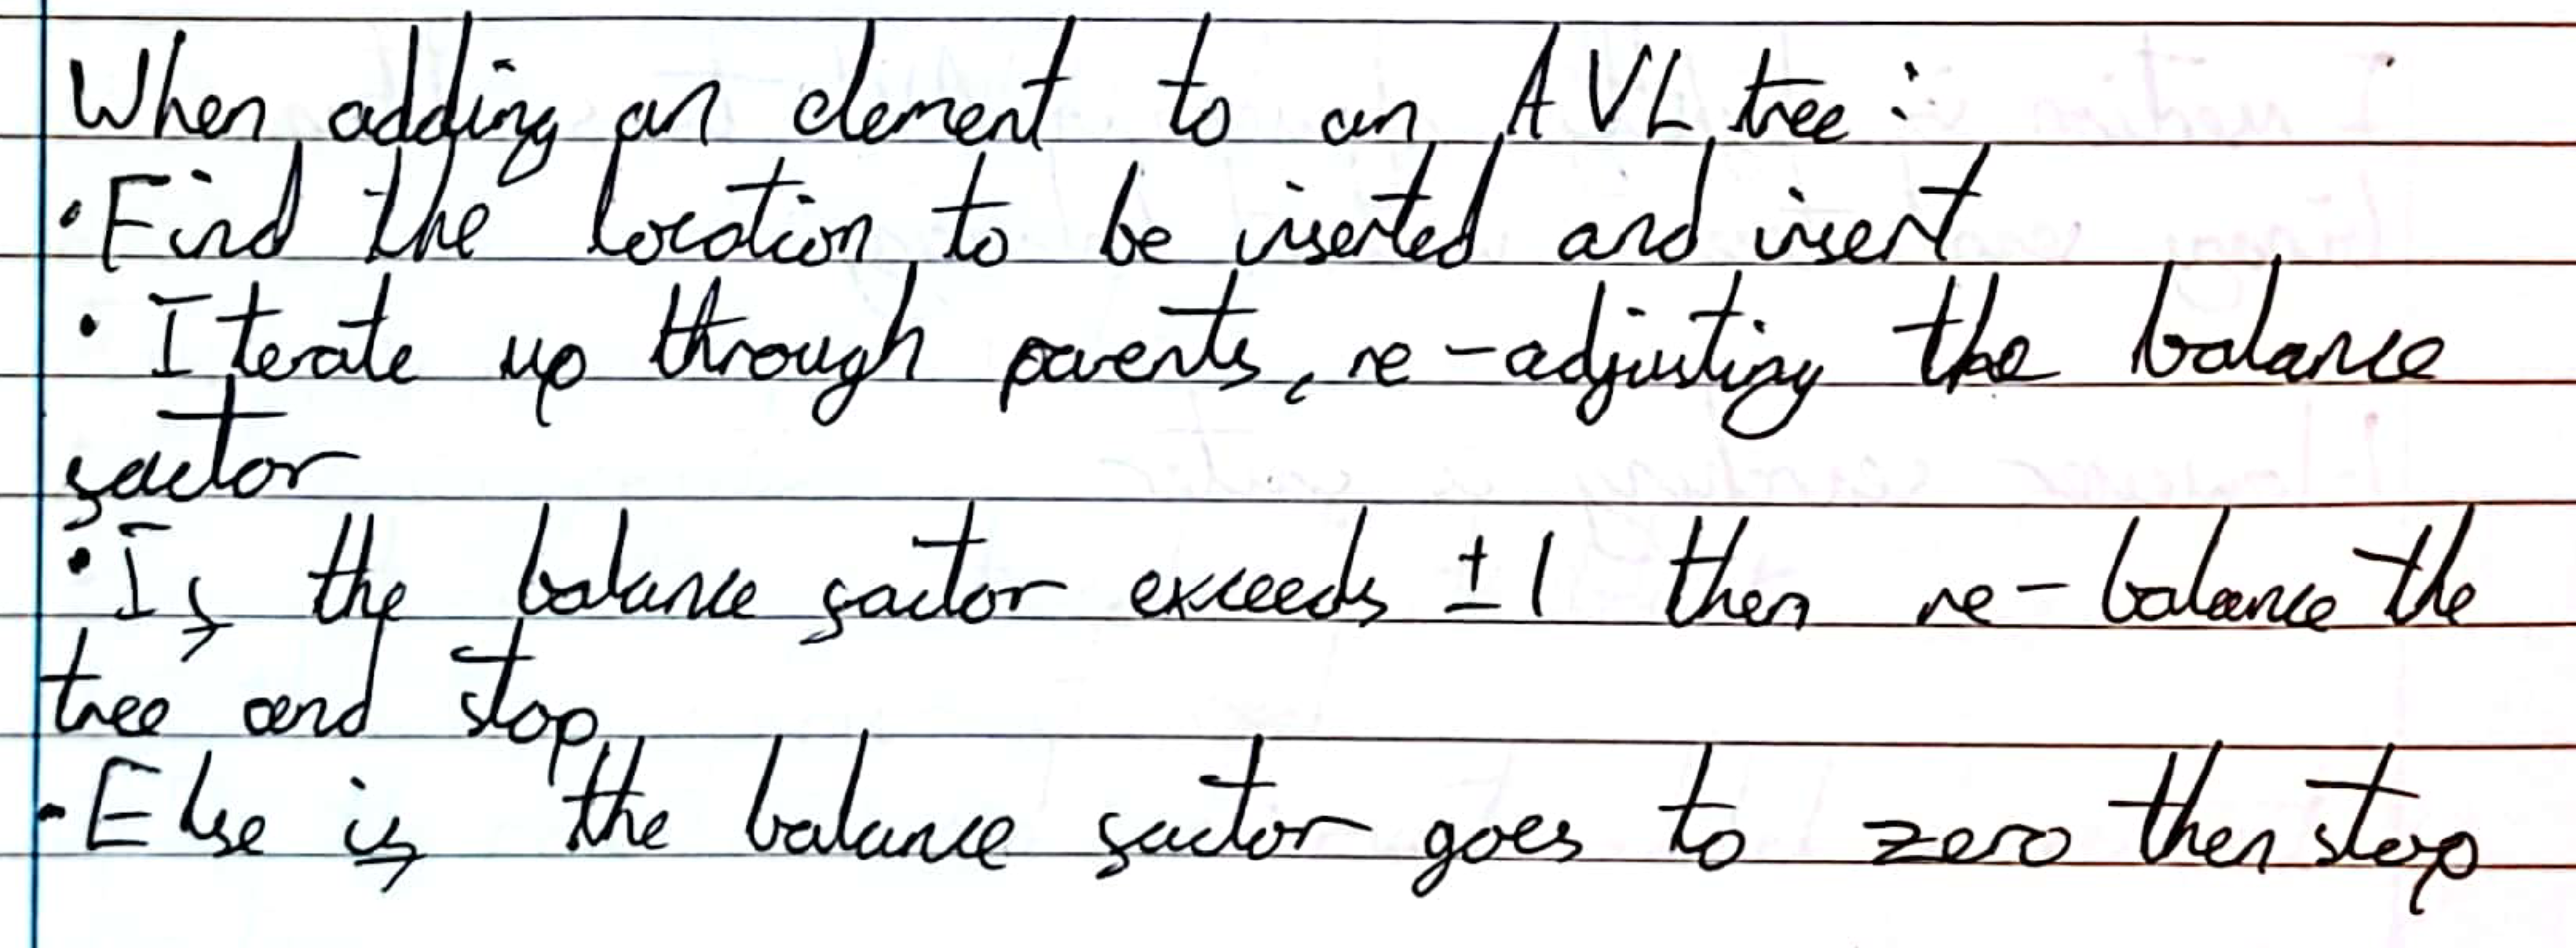 When adding an element to an AVL tree:
• Find the location to be inserted and insert
• Iterate up through parents, re-adjusting the balance
factor
• If the balance factor exceeds ±1 then re-balance the
tree and stop
• Else if the balance factor goes to zero then stop